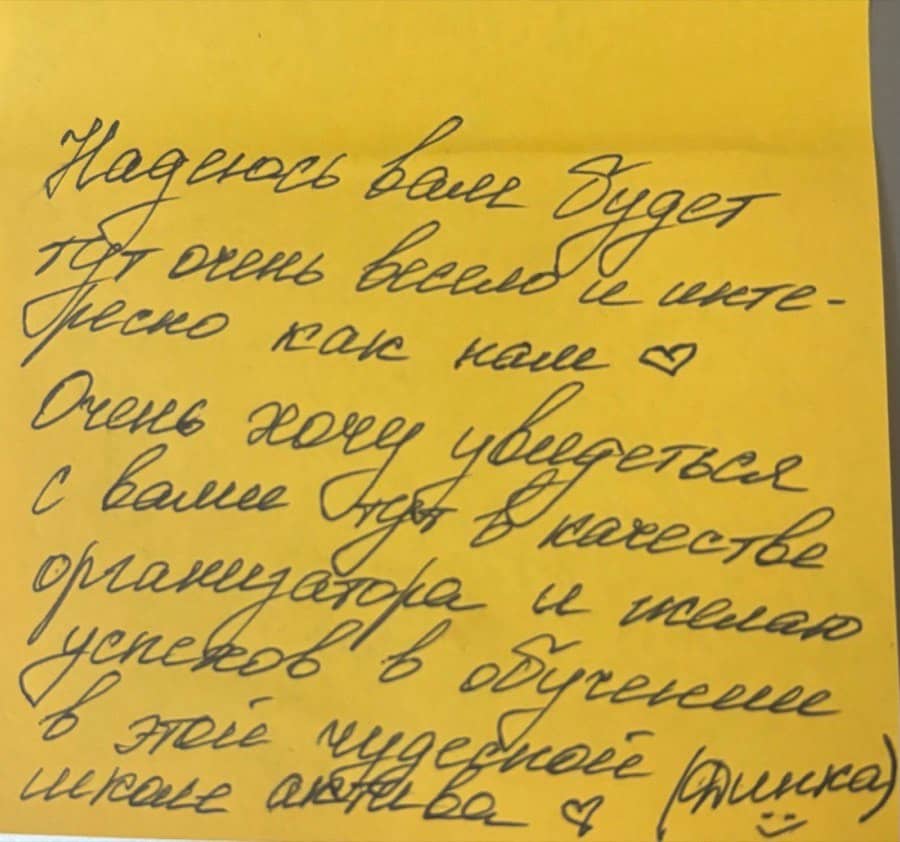 Надеюсь вам будет
тут очень весело и инте-
ресно как нам ♡
Очень хочу увидеться
с вами тут в качестве
организатора и желаю
успехов в обучении
в этой чудесной
школе актива ♡ (Динка)